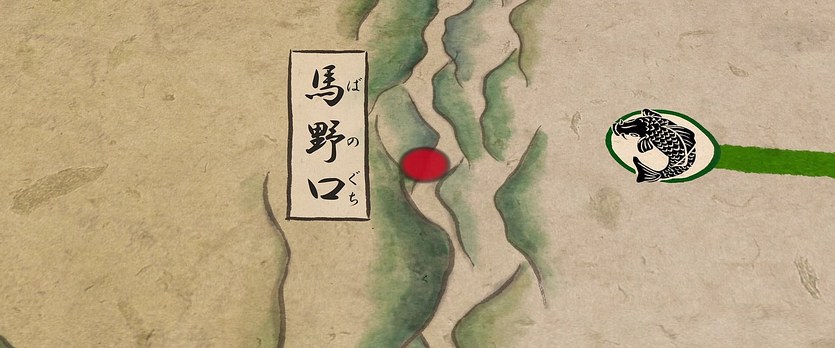 馬野口
ばのぐち